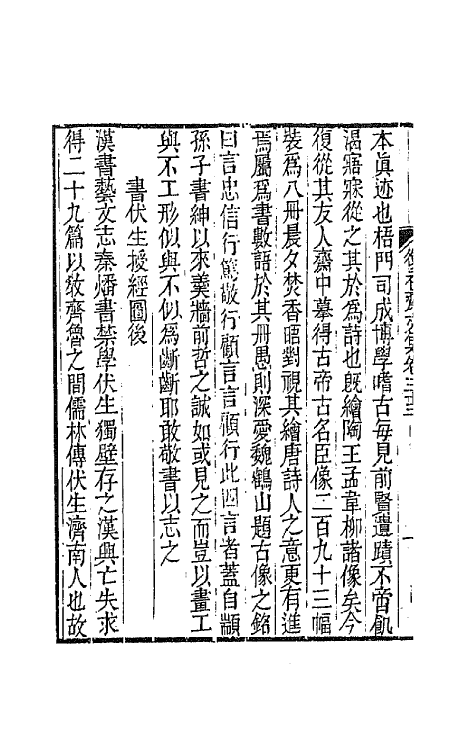 本眞迹也梧門司成博學嗜古每見前賢遺蹟不啻飢
渴寤寐從之其於爲詩也旣繪陶王孟韋柳諸像矣今
復從其友人齋中摹得古帝古名臣像二百九十三幅
裝爲八冊晨夕焚香晤對視其繪唐詩人之意更有進
焉屬爲書數語於其冊愚則深愛魏鶴山題古像之銘
曰言忠信行篤敬行顧言言顧行此四言者蓋自顓
孫子書紳以來羹牆前哲之誠如或見之而豈以畫工
與不工形似與不似爲齗齗耶敢敬書以志之
書伏生授經圖後
漢書藝文志秦燔書禁學伏生獨壁存之漢興亡失求
得二十九篇以敎齊魯之間儒林傳伏生濟南人也故